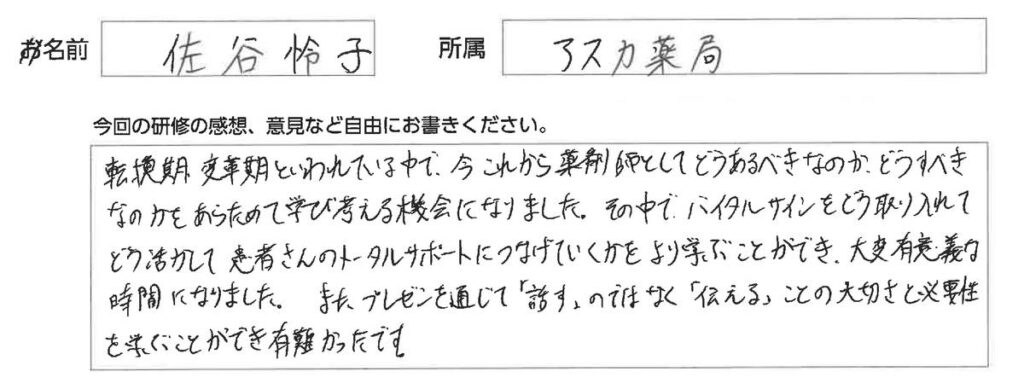 お名前 佐谷怜子 所属 アスカ薬局
今回の研修の感想、意見など自由にお書きください。
転換期、変革期といわれている中で、今これから薬剤師としてどうあるべきなのか、どうすべき
なのかをあらためて学び考える機会になりました。その中で、バイタルサインをどう取り入れて
どう活かして患者さんのトータルサポートにつなげていくかをより学ぶことができ、大変有意義な
時間になりました。 また、プレゼンを通じて「話す」のではなく「伝える」ことの大切さと必要性
を学ぶことができ有難かったです